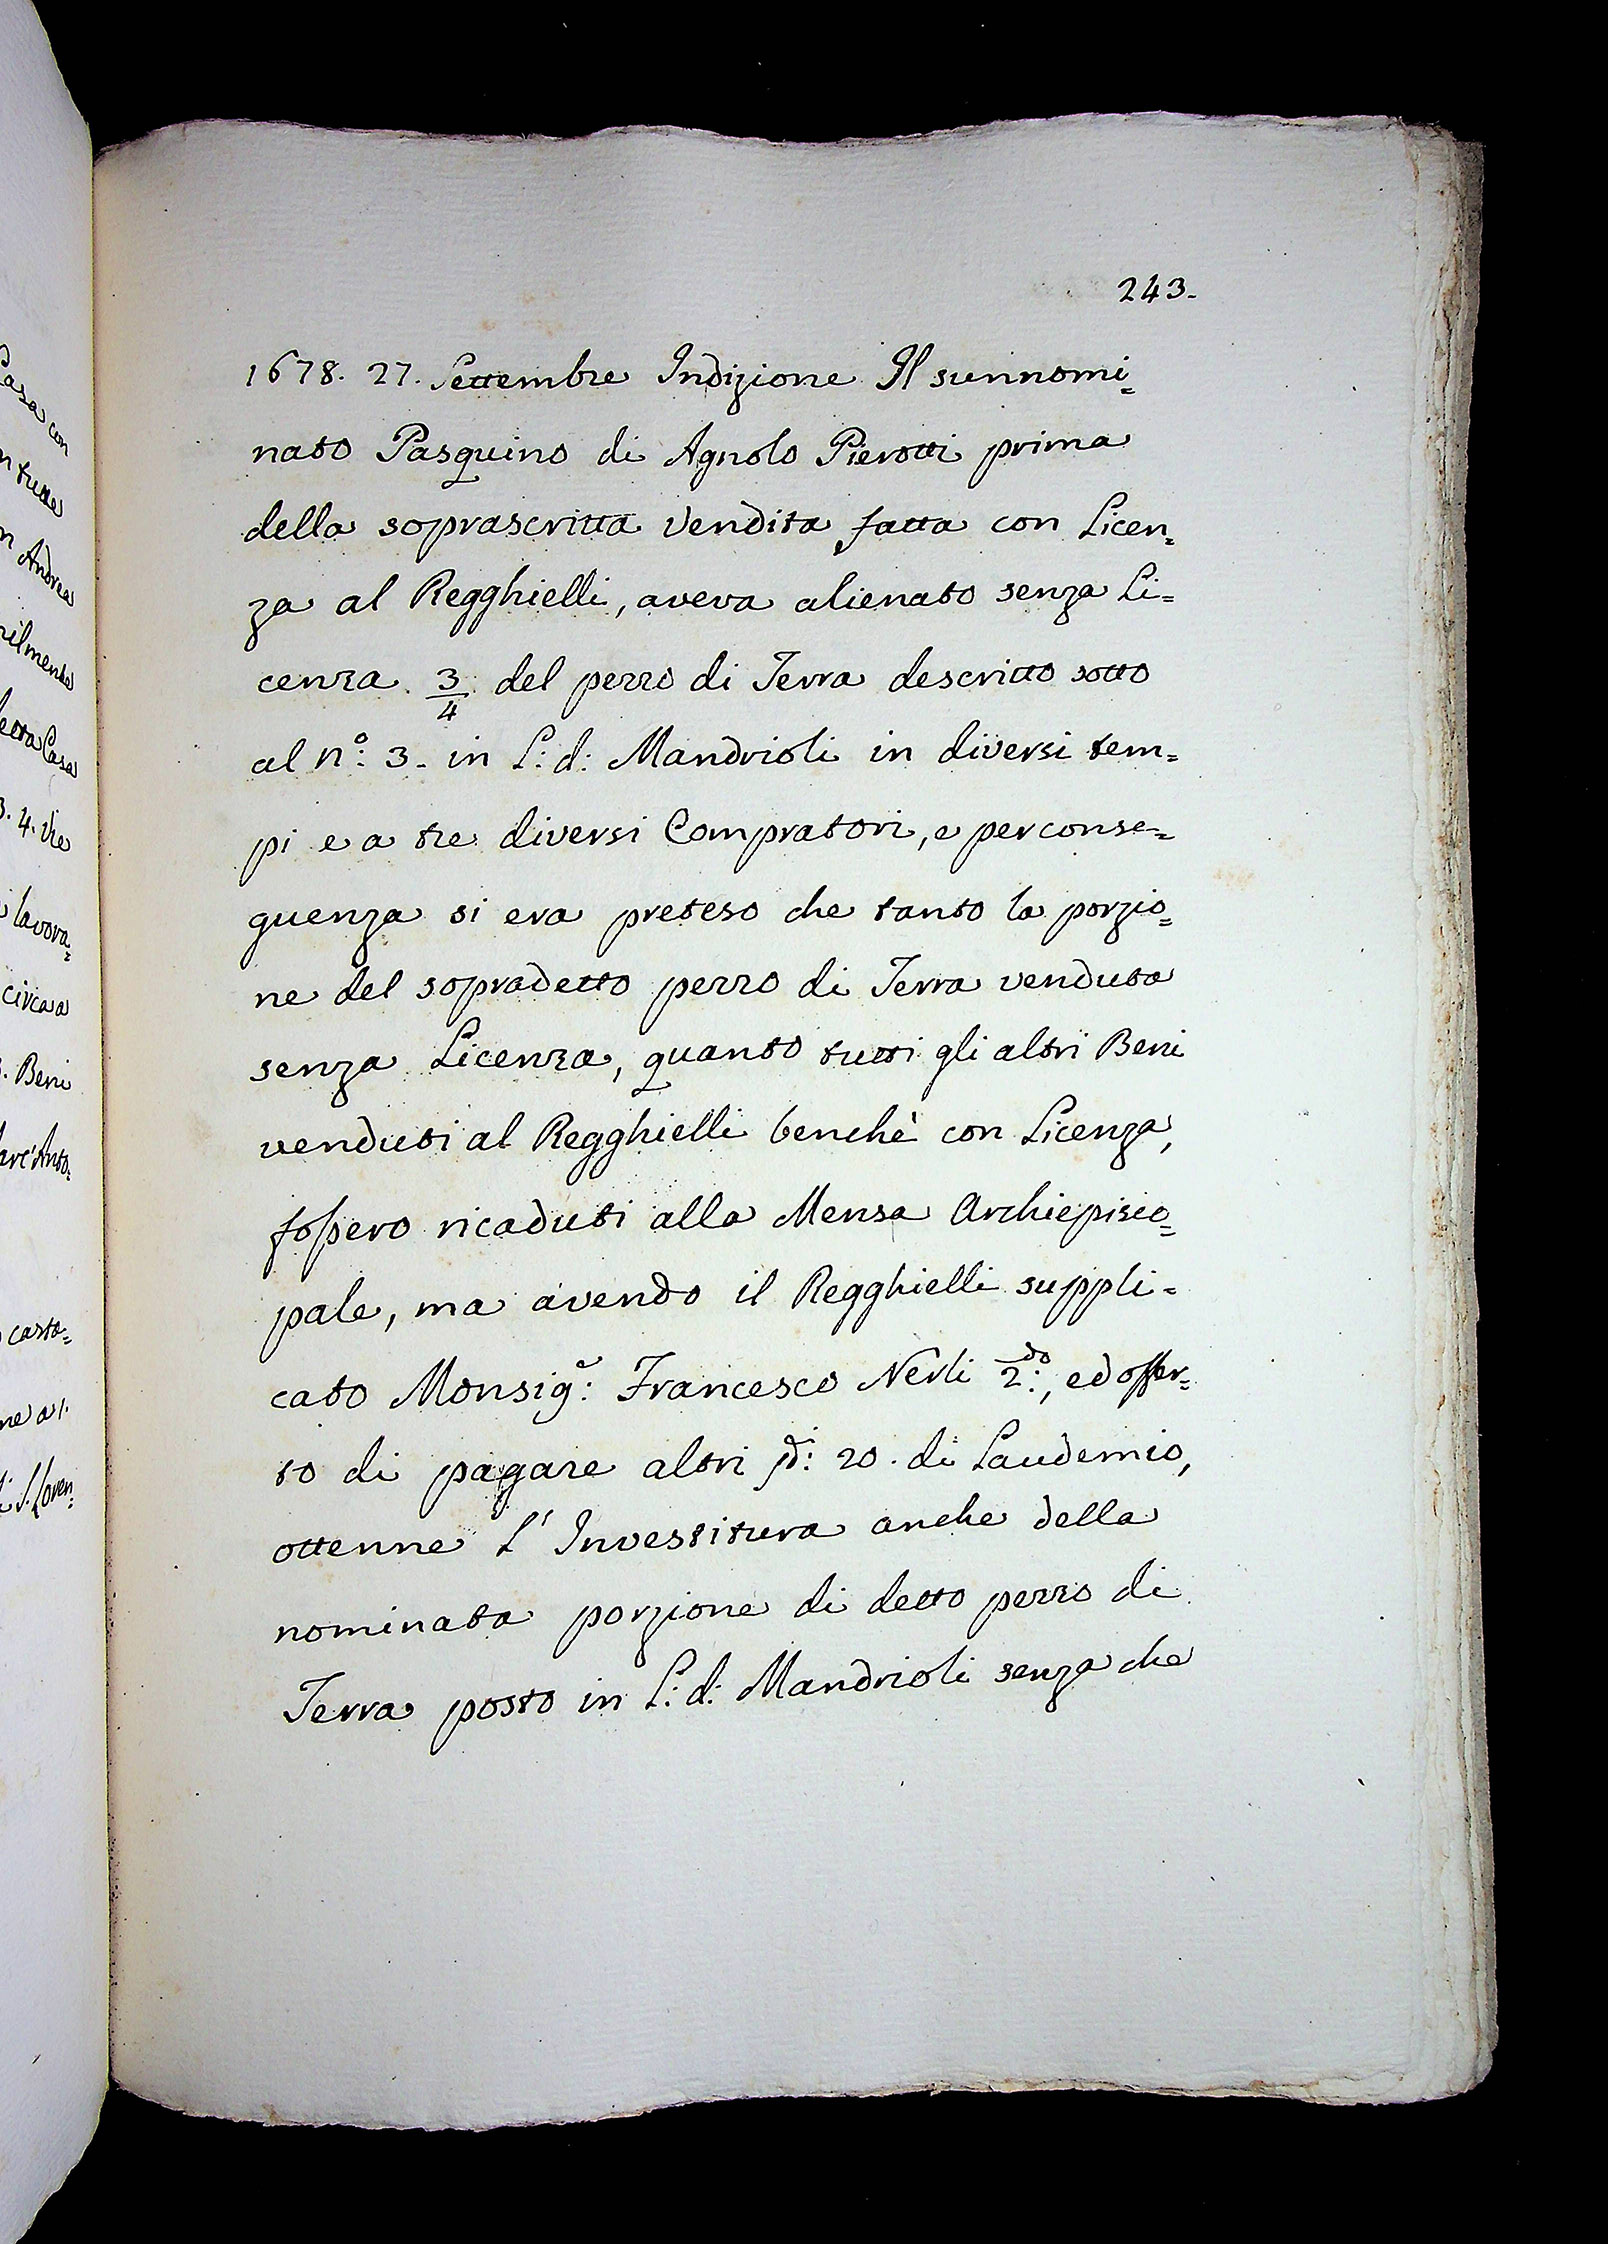 243.
1678. 27. Settembre Indizione Il sunnomi=
nato Pasquino di Agnolo Pierotti prima
della soprascritta vendita fatta con Licen=
za al Regghielli, aveva alienato senza Li=
cenza 3/4 del pezzo di Terra descritto sotto
al n°: 3. in L: d: Mandrioli in diversi tem=
pi e a tre diversi Compratori, e per conse=
guenza si era preteso che tanto la porzio=
ne del sopradetto pezzo di Terra venduta
senza Licenza, quanto tutti gli altri Beni
venduti al Regghielli benchè con Licenza,
fossero ricaduti alla Mensa Archiepisco=
pale, ma avendo il Regghielli suppli=
cato Monsig.e: Francesco Nerli 2.do:, ed offer=
to di pagare altri 20. di Laudemio,
ottenne L' Investitura anche della
nominata porzione di detto pezzo di
Terra posto in L: d: Mandrioli senza che
Casa con
n tutte
n Andrea
rilmente
detta Casa
3. 4. Via
lavora=
circa a
. Beni
Anto=
casto=
ne a 1.
di S. Loren=